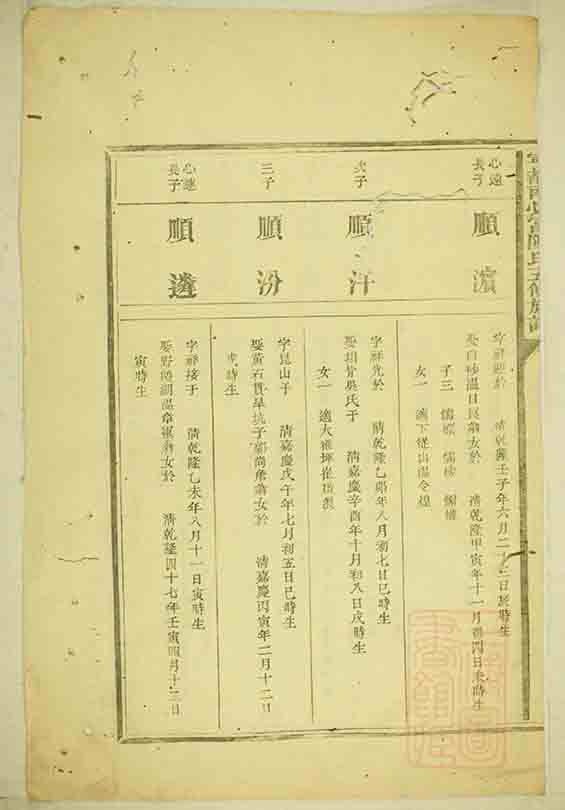 心遠
長子
順濱
清乾隆壬子年六月二十三日辰時生
娶白砂溫日良翁女於 清乾隆甲寅年十一月初四日未時生
子三
女一 適下徑山溫令煌
次子
順汗
字祥光於 清乾隆乙卯年八月初七日巳時生
娶壩背吳氏于 清嘉慶辛酉年十月初八日戌時生
女一 適大雅坪崔
三子
順汾
字昆山于 清嘉慶戊午年七月初五日巳時生
娶黃石貫旱坑子廖尚彝翁女於 清嘉慶丙寅年二月十二日
時生
心逵
長子
順遴
字祥接于 清乾隆乙未年八月十一日寅時生
娶野 湖溫章 翁女於 清乾隆四十七年壬寅四月十三日
寅時生